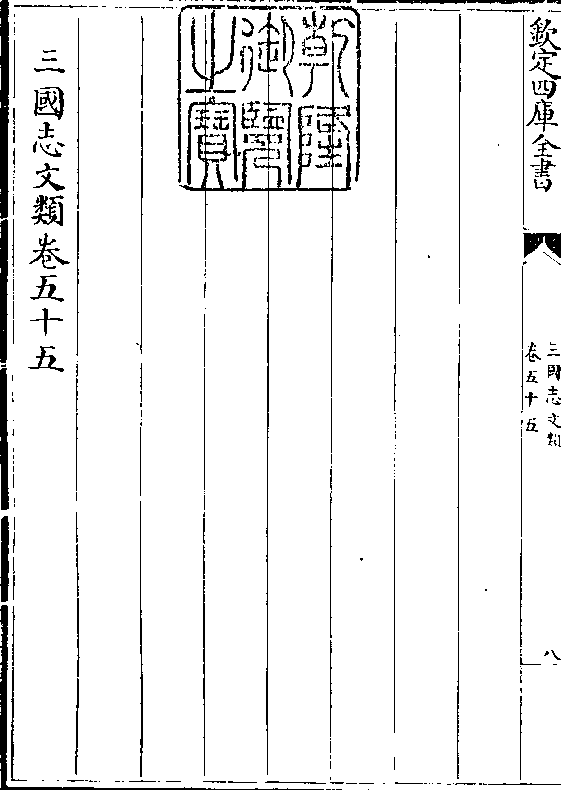 欽定四庫全書
三國志文類
卷五十五
八
乾隆
御覽
之寶
三國志文類卷五十五